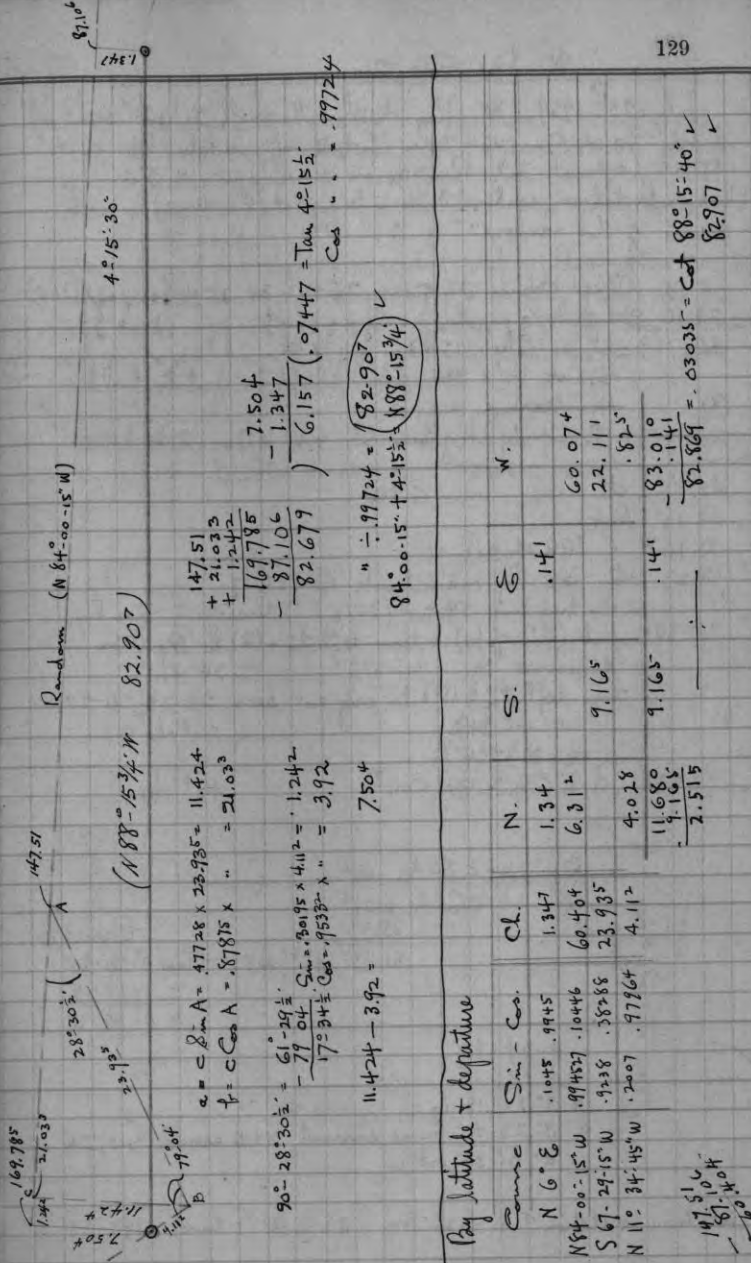 129
87.106
1.347
Random (N 84°-00-15" W)
4°-15'-30"
(N 88°-15 3/4' W 82.907)
169.785
147.51
1.242
21.033
A
28°-30 1/2'
23.935
7.504
11.424
4.112
79°-04'
B
a = c Sin A = .47728 x 23.935 = 11.424
b = c Cos A = .87875 x " = 21.033
90° - 28°-30 1/2' = 61°-29 1/2'
- 79 04
17°-34 1/2'
Sin = .30195 x 4.112 = 1.242
Cos = .95332 x " = 3.92
11.424 - 3.92 = 7.504
147.51
+ 21.033
+ 1.242
169.785
- 87.106
82.679
- 7.504
1.347
) 6.157 ( .07447 = Tan 4°-15 1/2'
Cos " " = .99724
" ÷ .99724 = 82.907
84°-00-15" + 4°-15 1/2' = N 88°-15 3/4' ✓
By latitude + departure
Course Sin - Cos. Ch. N. S. E W.
N 6° E .1045 .9945 1.347 1.34 .141
N 84-00-15" W .994527 .10446 60.404 6.312 60.074
S 67-29-15" W .9238 .38288 23.935 9.165 22.111
N 11° 34'-45" W .2007 .97964 4.112 4.028 .825
11.680 9.165 .141 83.010
- 9.165 - .141
2.515 82.869 = .03035 = Cot 88°-15'-40" ✓
82.907 ✓
147.51
87.106
60.404